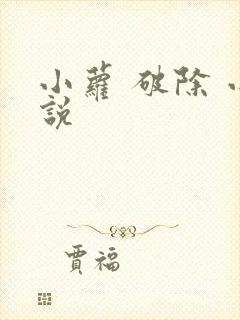 小蘿 破除
說
賈福